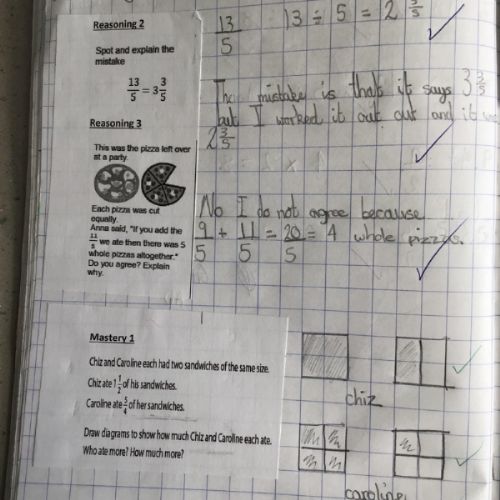 Reasoning 2
Spot and explain the
mistake
13/5 = 3 3/5
13/5 13 ÷ 5 = 2 3/5
The mistake is that it says 3 3/5
but I worked it out out and it
2 3/5
Reasoning 3
This was the pizza left over
at a party.
Each pizza was cut
equally.
Anna said, "If you add the
11/5 we ate then there was 5
whole pizzas altogether."
Do you agree? Explain
why.
No I do not agree because
9/5 + 11/5 = 20/5 = 4 whole pizzas.
Mastery 1
Chiz and Caroline each had two sandwiches of the same size.
Chiz ate 1 1/2 of his sandwiches.
Caroline ate 5/4 of her sandwiches.
Draw diagrams to show how much Chiz and Caroline each ate.
Who ate more? How much more?
chiz
caroline